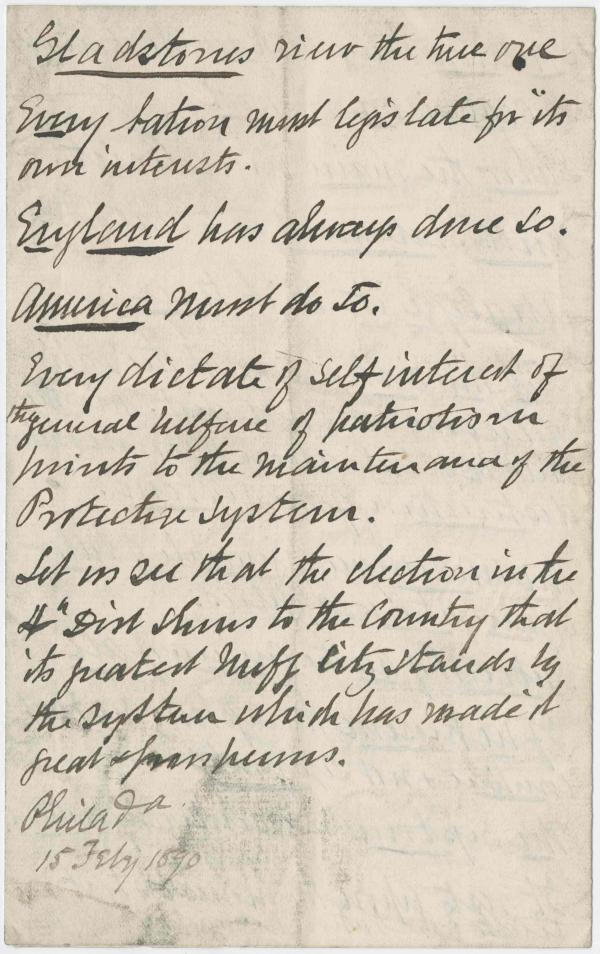 Gladstones view the true one
Every Nation must legislate for its
own interests.
England has always done so.
America must do so.
Every dictate of self interest of
the general welfare of patriotism
points to the maintenance of the
Protective System.
Let us see that the election in the
4" Dist shows to the Country that
its greatest Muff City stands by
the system which has made it
great & prosperous.
Philada
15 Feby 1890